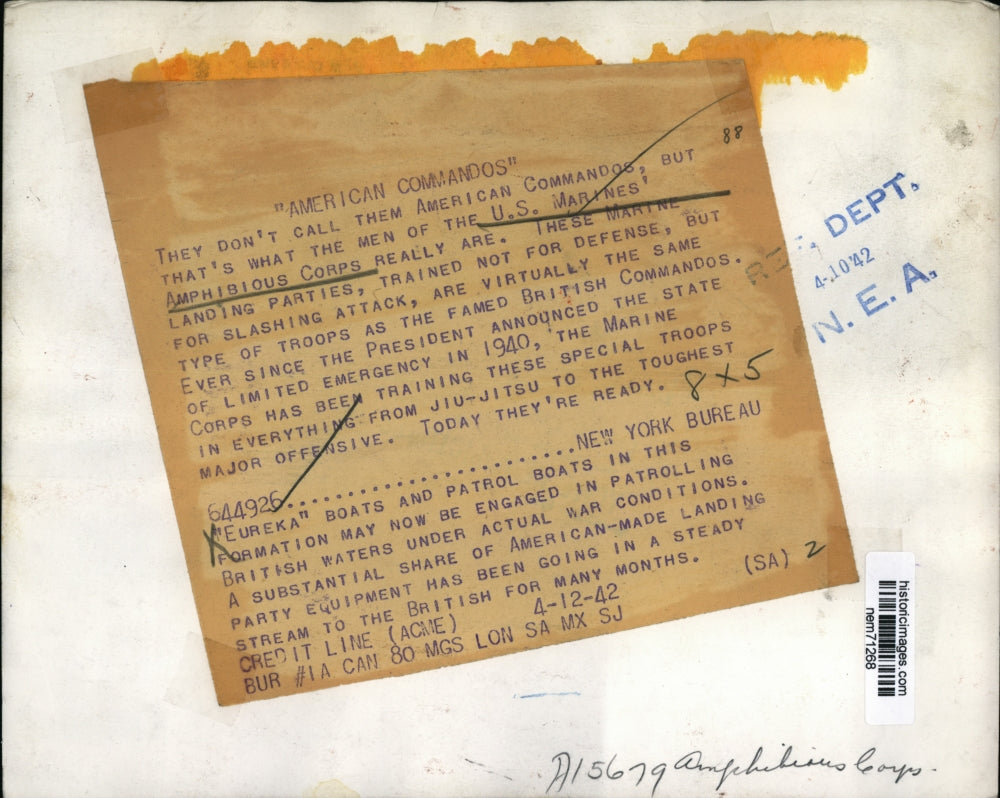 88
"AMERICAN COMMANDOS"
THEY DON'T CALL THEM AMERICAN COMMANDOS, BUT
THAT'S WHAT THE MEN OF THE U.S. MARINES'
AMPHIBIOUS CORPS REALLY ARE. THESE MARINE
LANDING PARTIES, TRAINED NOT FOR DEFENSE, BUT
FOR SLASHING ATTACK, ARE VIRTUALLY THE SAME
TYPE OF TROOPS AS THE FAMED BRITISH COMMANDOS.
EVER SINCE THE PRESIDENT ANNOUNCED THE STATE
OF LIMITED EMERGENCY IN 1940, THE MARINE
CORPS HAS BEEN TRAINING THESE SPECIAL TROOPS
IN EVERYTHING FROM JIU-JITSU TO THE TOUGHEST
MAJOR OFFENSIVE. TODAY THEY'RE READY.
8 x 5
644926.........................NEW YORK BUREAU
"EUREKA" BOATS AND PATROL BOATS IN THIS
FORMATION MAY NOW BE ENGAGED IN PATROLLING
BRITISH WATERS UNDER ACTUAL WAR CONDITIONS.
A SUBSTANTIAL SHARE OF AMERICAN-MADE LANDING
PARTY EQUIPMENT HAS BEEN GOING IN A STEADY
STREAM TO THE BRITISH FOR MANY MONTHS. (SA) 2
CREDIT LINE (ACME) 4-12-42
BUR #1A CAN 80 MGS LON SA MX SJ
DEPT.
4-10'42
N. E. A.
historicimages.com
nem71268
A15679 Amphibious Corps.